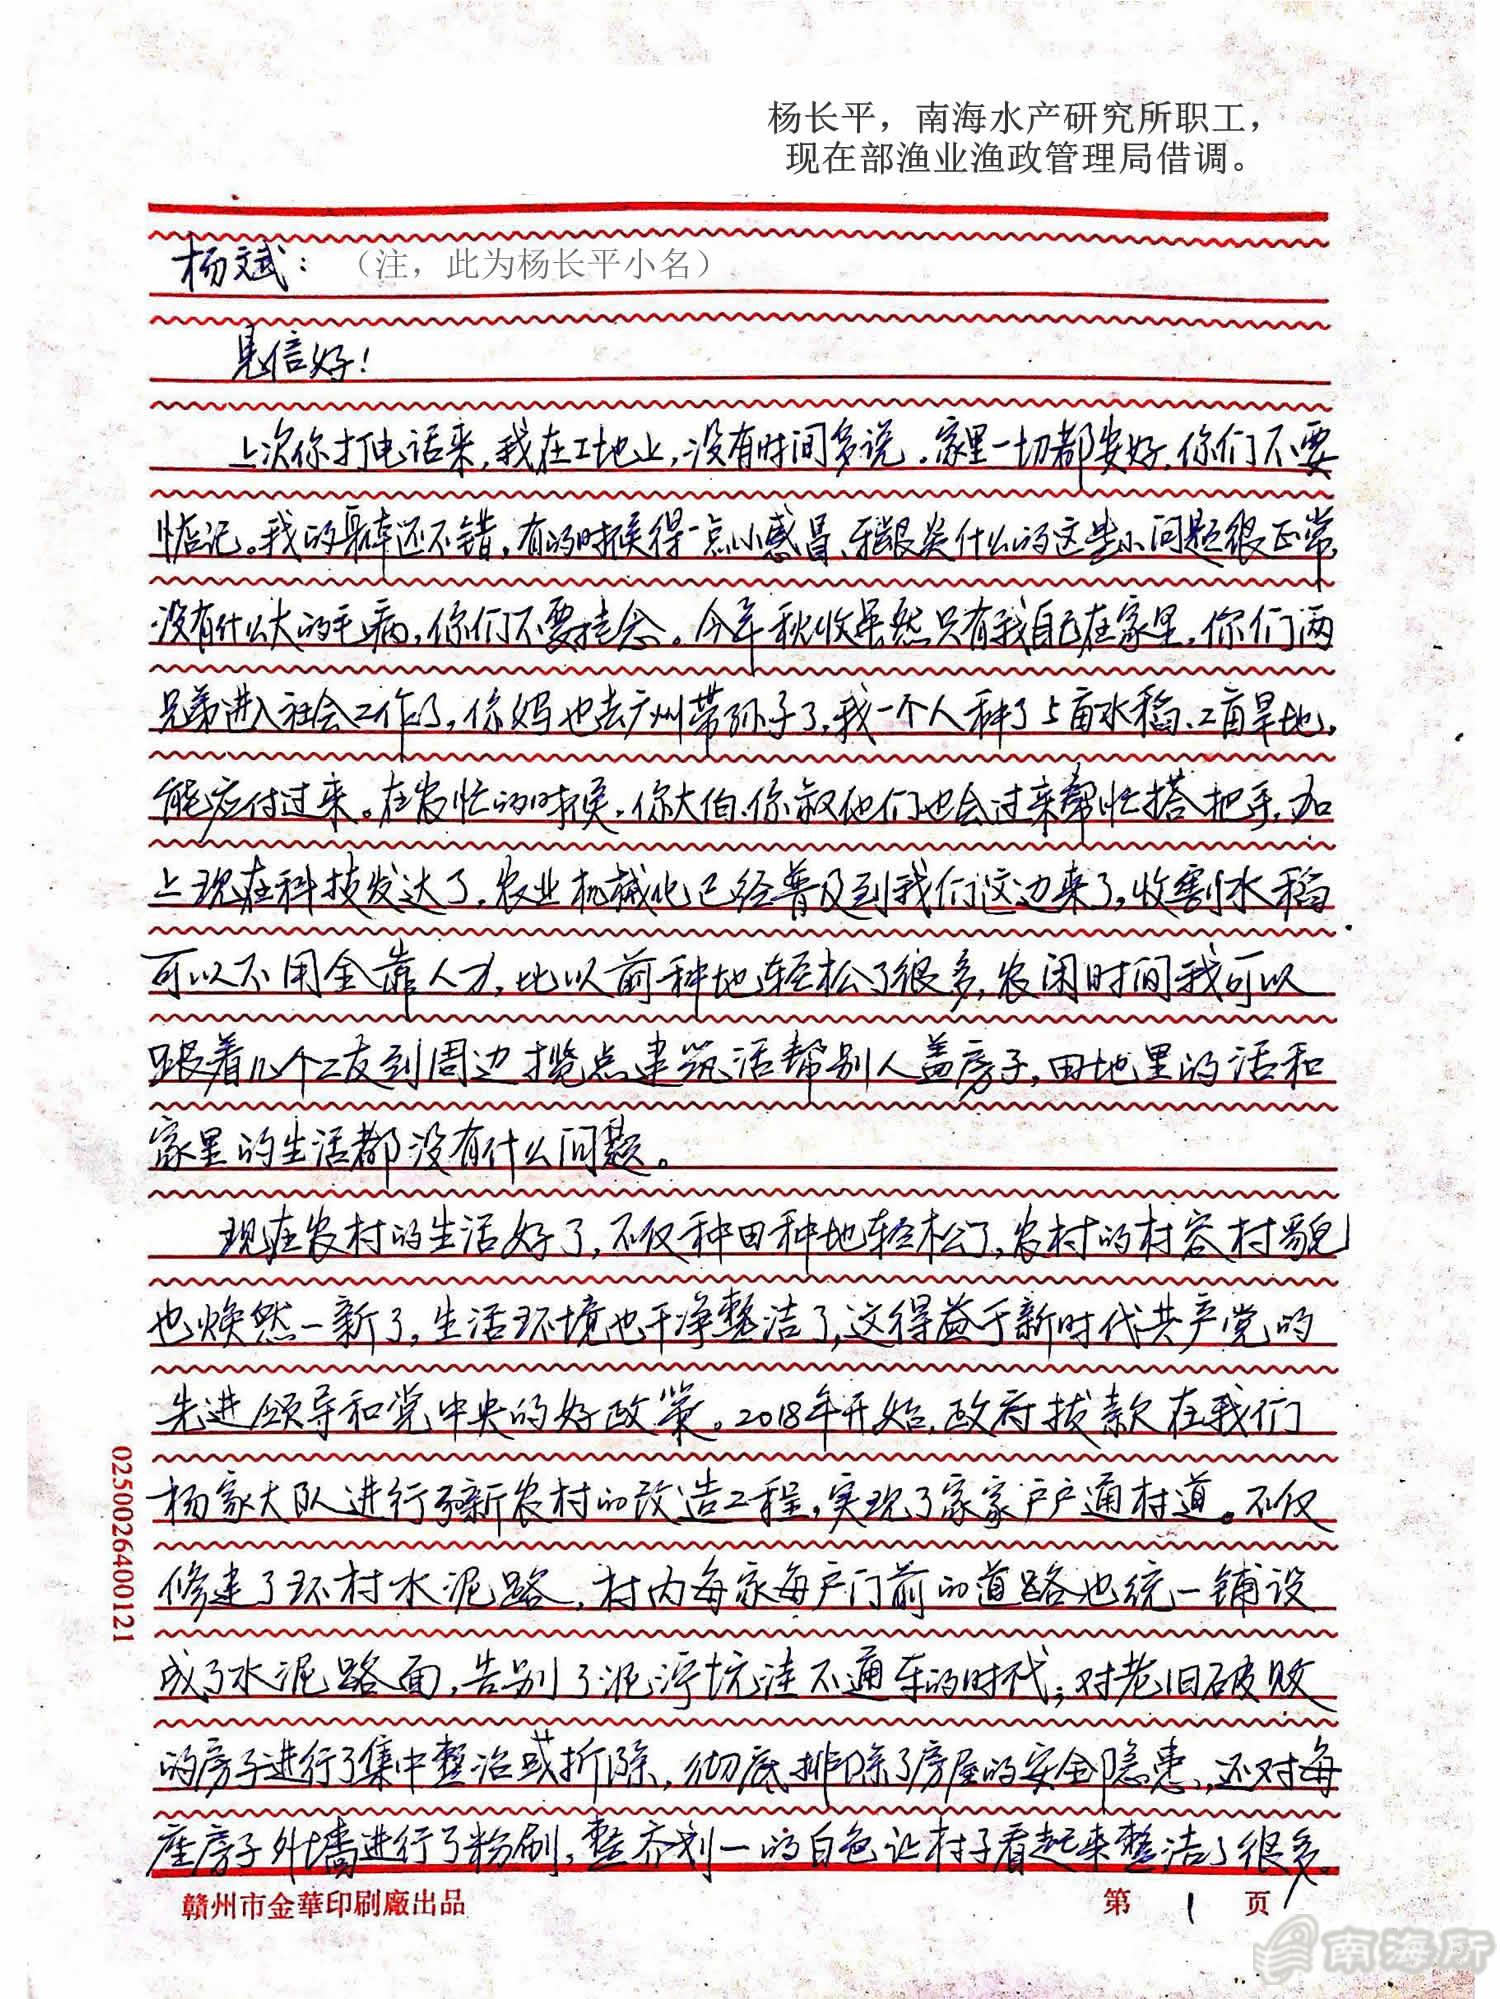 杨长平，南海水产研究所职工，
现在部渔业渔政管理局借调。
杨斌：（注，此为杨长平小名）
见信好！
上次你打电话来，我在工地上，没有时间多说。家里一切都安好，你们不要
惦记。我的身体还不错，有的时候得一点小感冒、牙龈炎什么的这些小问题很正常，
没有什么大的毛病，你们不要挂念。今年秋收虽然只有我自己在家里，你们两
兄弟进入社会工作了，你妈也去广州带孙子了，我一个人种了5亩水稻、2亩旱地，
能应付过来。在农忙的时候，你大伯、你叔他们也会过来帮忙搭把手，加
上现在科技发达了，农业机械化已经普及到我们这边来了，收割水稻
可以不用全靠人力，比以前种地轻松了很多，农闲时间我可以
跟着几个工友到周边揽点建筑活帮别人盖房子，田地里的活和
家里的生活都没有什么问题。
现在农村的生活好了，不仅种田种地轻松了，农村的村容村貌
也焕然一新了，生活环境也干净整洁了，这得益于新时代共产党的
先进领导和党中央的好政策。2018年开始，政府拔款在我们
杨家大队进行了新农村的改造工程，实现了家家户户通村道。不仅
修建了环村水泥路，村内每家每户门前的道路也统一铺设
成了水泥路面，告别了泥泞坑洼不通车的时代；对老旧破败
的房子进行了集中整治或拆除，彻底排除了房屋的安全隐患，还对每
座房子外墙进行了粉刷，整齐划一的白色让村子看起来整洁了很多。
0250026400121
赣州市金華印刷廠出品
第 1 页
南海所